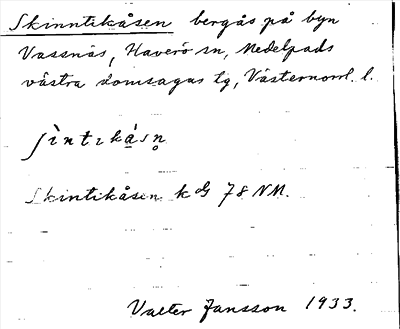 Skinntikåsen bergås på byn
Vassnäs, Haverö sn, Medelpads
västra domsagas tg, Västernorrl. l.
ʃìntɩkàsn̥
Skintikåsen k dg 78 NM.
Valter Jansson 1933.